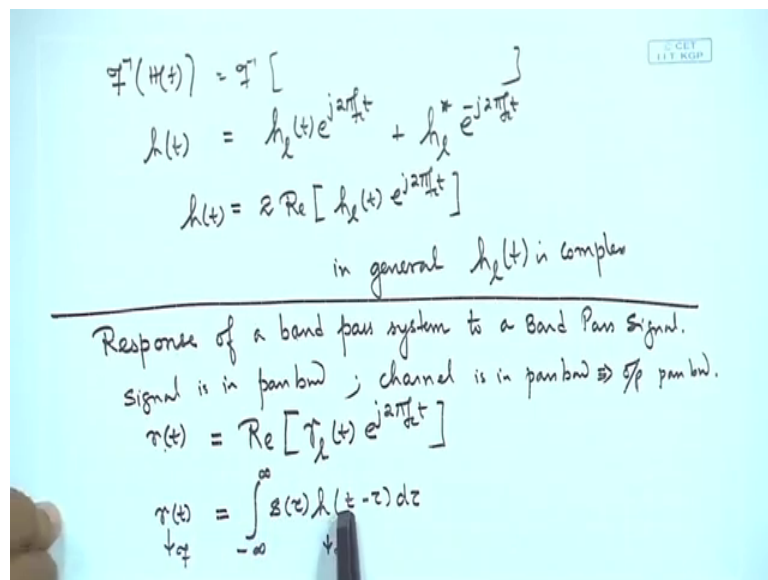 © CET
I.I.T. KGP
𝓕⁻¹(H(t)) = 𝓕⁻¹ [ ]
h(t) = h_l(t) e^{j2πf_ct} + h_l^* e^{-j2πf_ct}
h(t) = 2 Re [ h_l(t) e^{j2πf_ct} ]
in general h_l(t) is complex
Response of a band pass system to a Band Pass Signal.
Signal is in pass bnd ; channel is in pass bnd ⇒ o/p pass bw.
r(t) = Re [ r_l(t) e^{j2πf_ct} ]
r(t) = ∫_{-∞}^{∞} s(τ) h(t-τ) dτ
↓𝓕 ↓